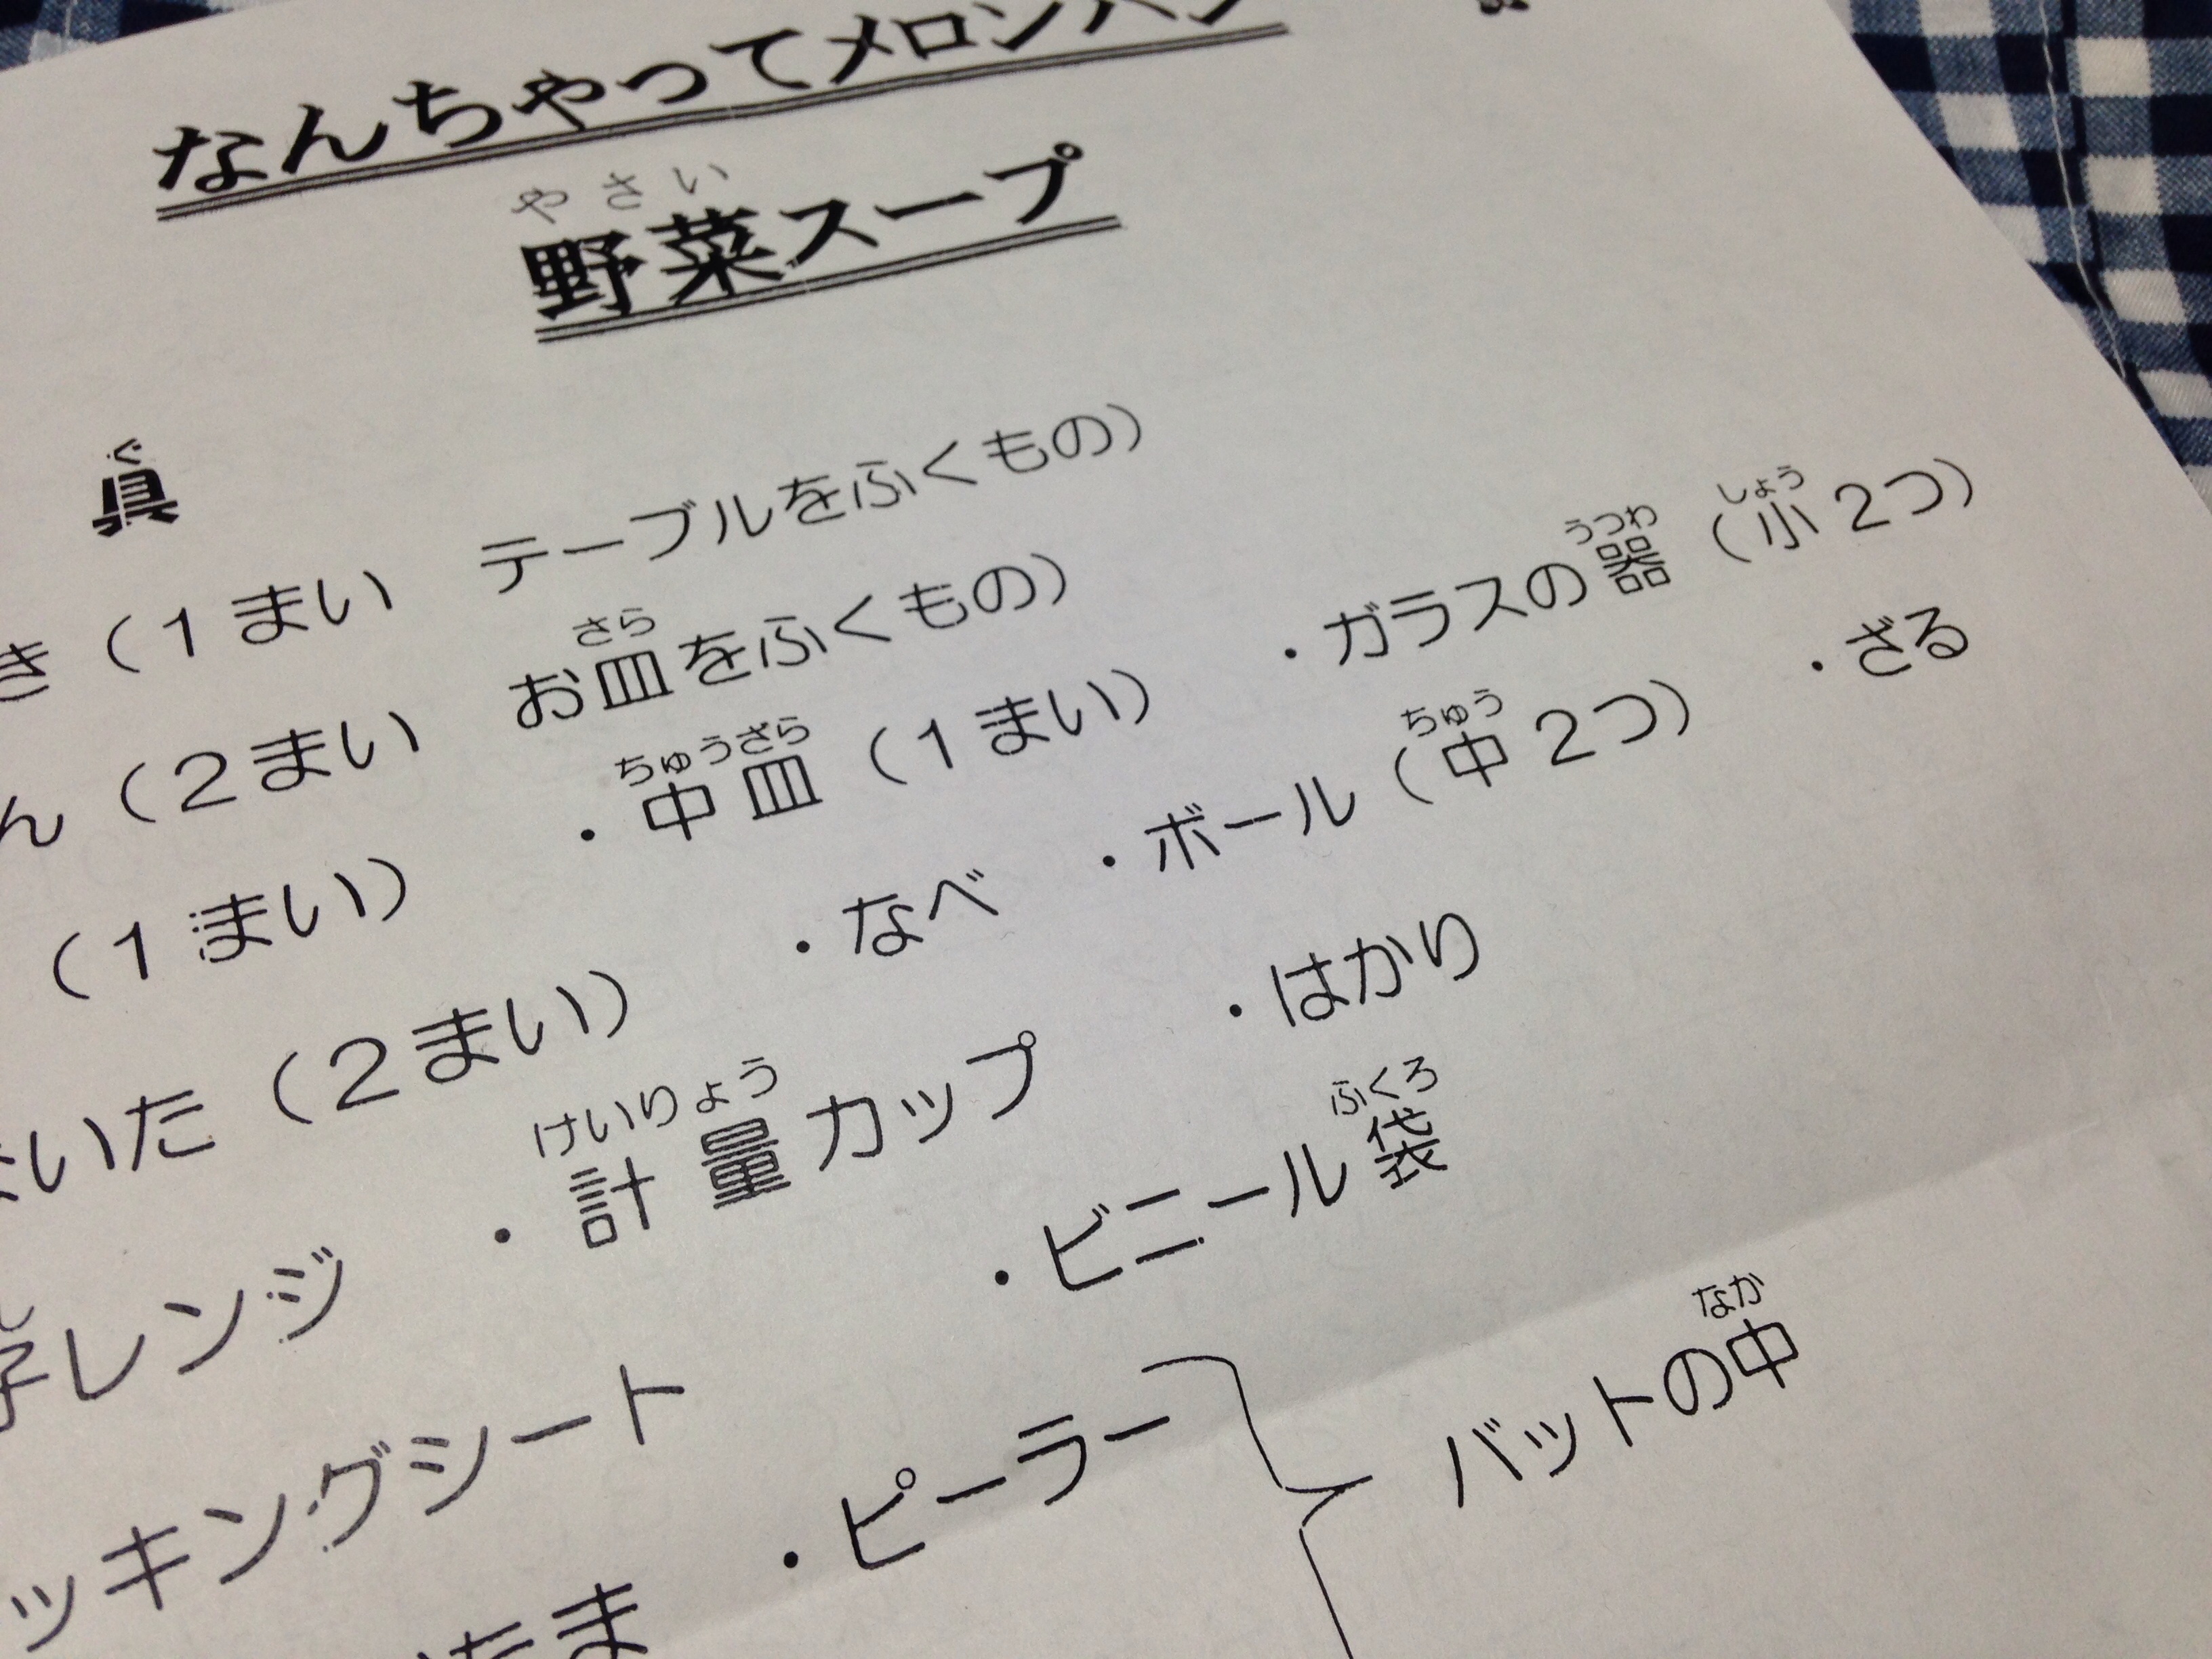 なんちゃってメロンパン
やさい
野菜スープ
ぐ
具
き（1まい　テーブルをふくもの）
さら
ん（2まい　お皿をふくもの）
ちゅうざら　うつわ　しょう
（1まい）　・中皿（1まい）　・ガラスの器（小2つ）
ちゅう
いた（2まい）　・なべ　・ボール（中2つ）　・ざる
けいりょう
レンジ　・計量カップ　・はかり
ふくろ
ッキングシート　・ビニール袋
なか
たま　・ピーラー　バットの中